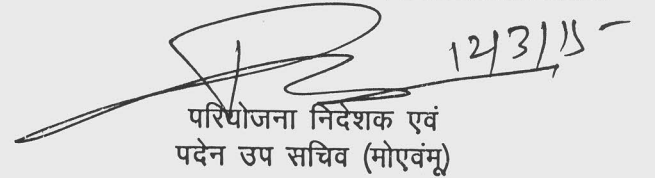 12/3/15
परियोजना निदेशक एवं
पदेन उप सचिव (मोएवंमू)